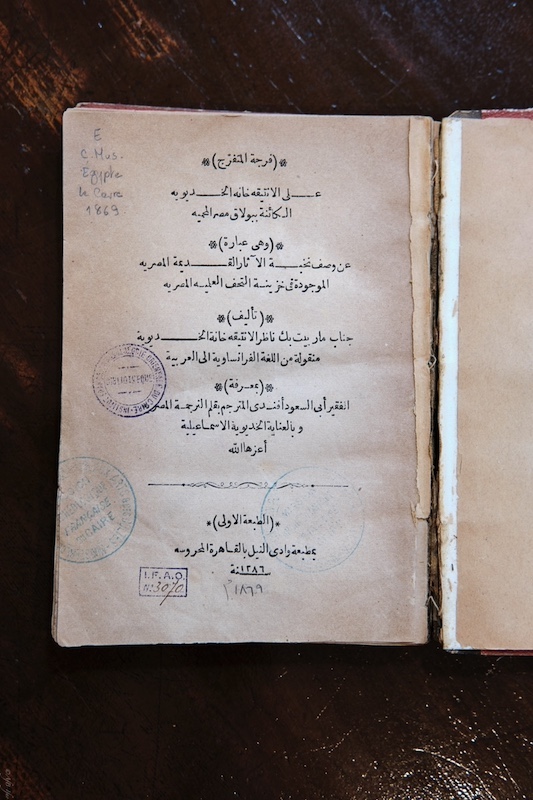 E
C. Mus.
Égypte
Le Caire
1869
(فرجة المتفرج)
على الانتيقه خانه الخديويه
الكائنة ببولاق مصر المحميه
(وهى عبارة)
عن وصف نخبة الآثار القديمة المصريه
الموجودة فى خزينة التحف العلميه المصريه
(تأليف)
جناب مارييت بك ناظر الانتيقه خانة الخديوية
منقولة من اللغة الفرانساوية الى العربية
(بمعرفة)
الفقير أبى السعود أفندى المترجم بقلم الترجمة
وبالعناية الخديوية الاسماعيلية
أعزها الله
(الطبعة الاولى)
بمطبعة وادى النيل بالقاهرة المحروسه
سنة ١٢٨٦
١٨٦٩ م
I.F.A.O.
n: 3070